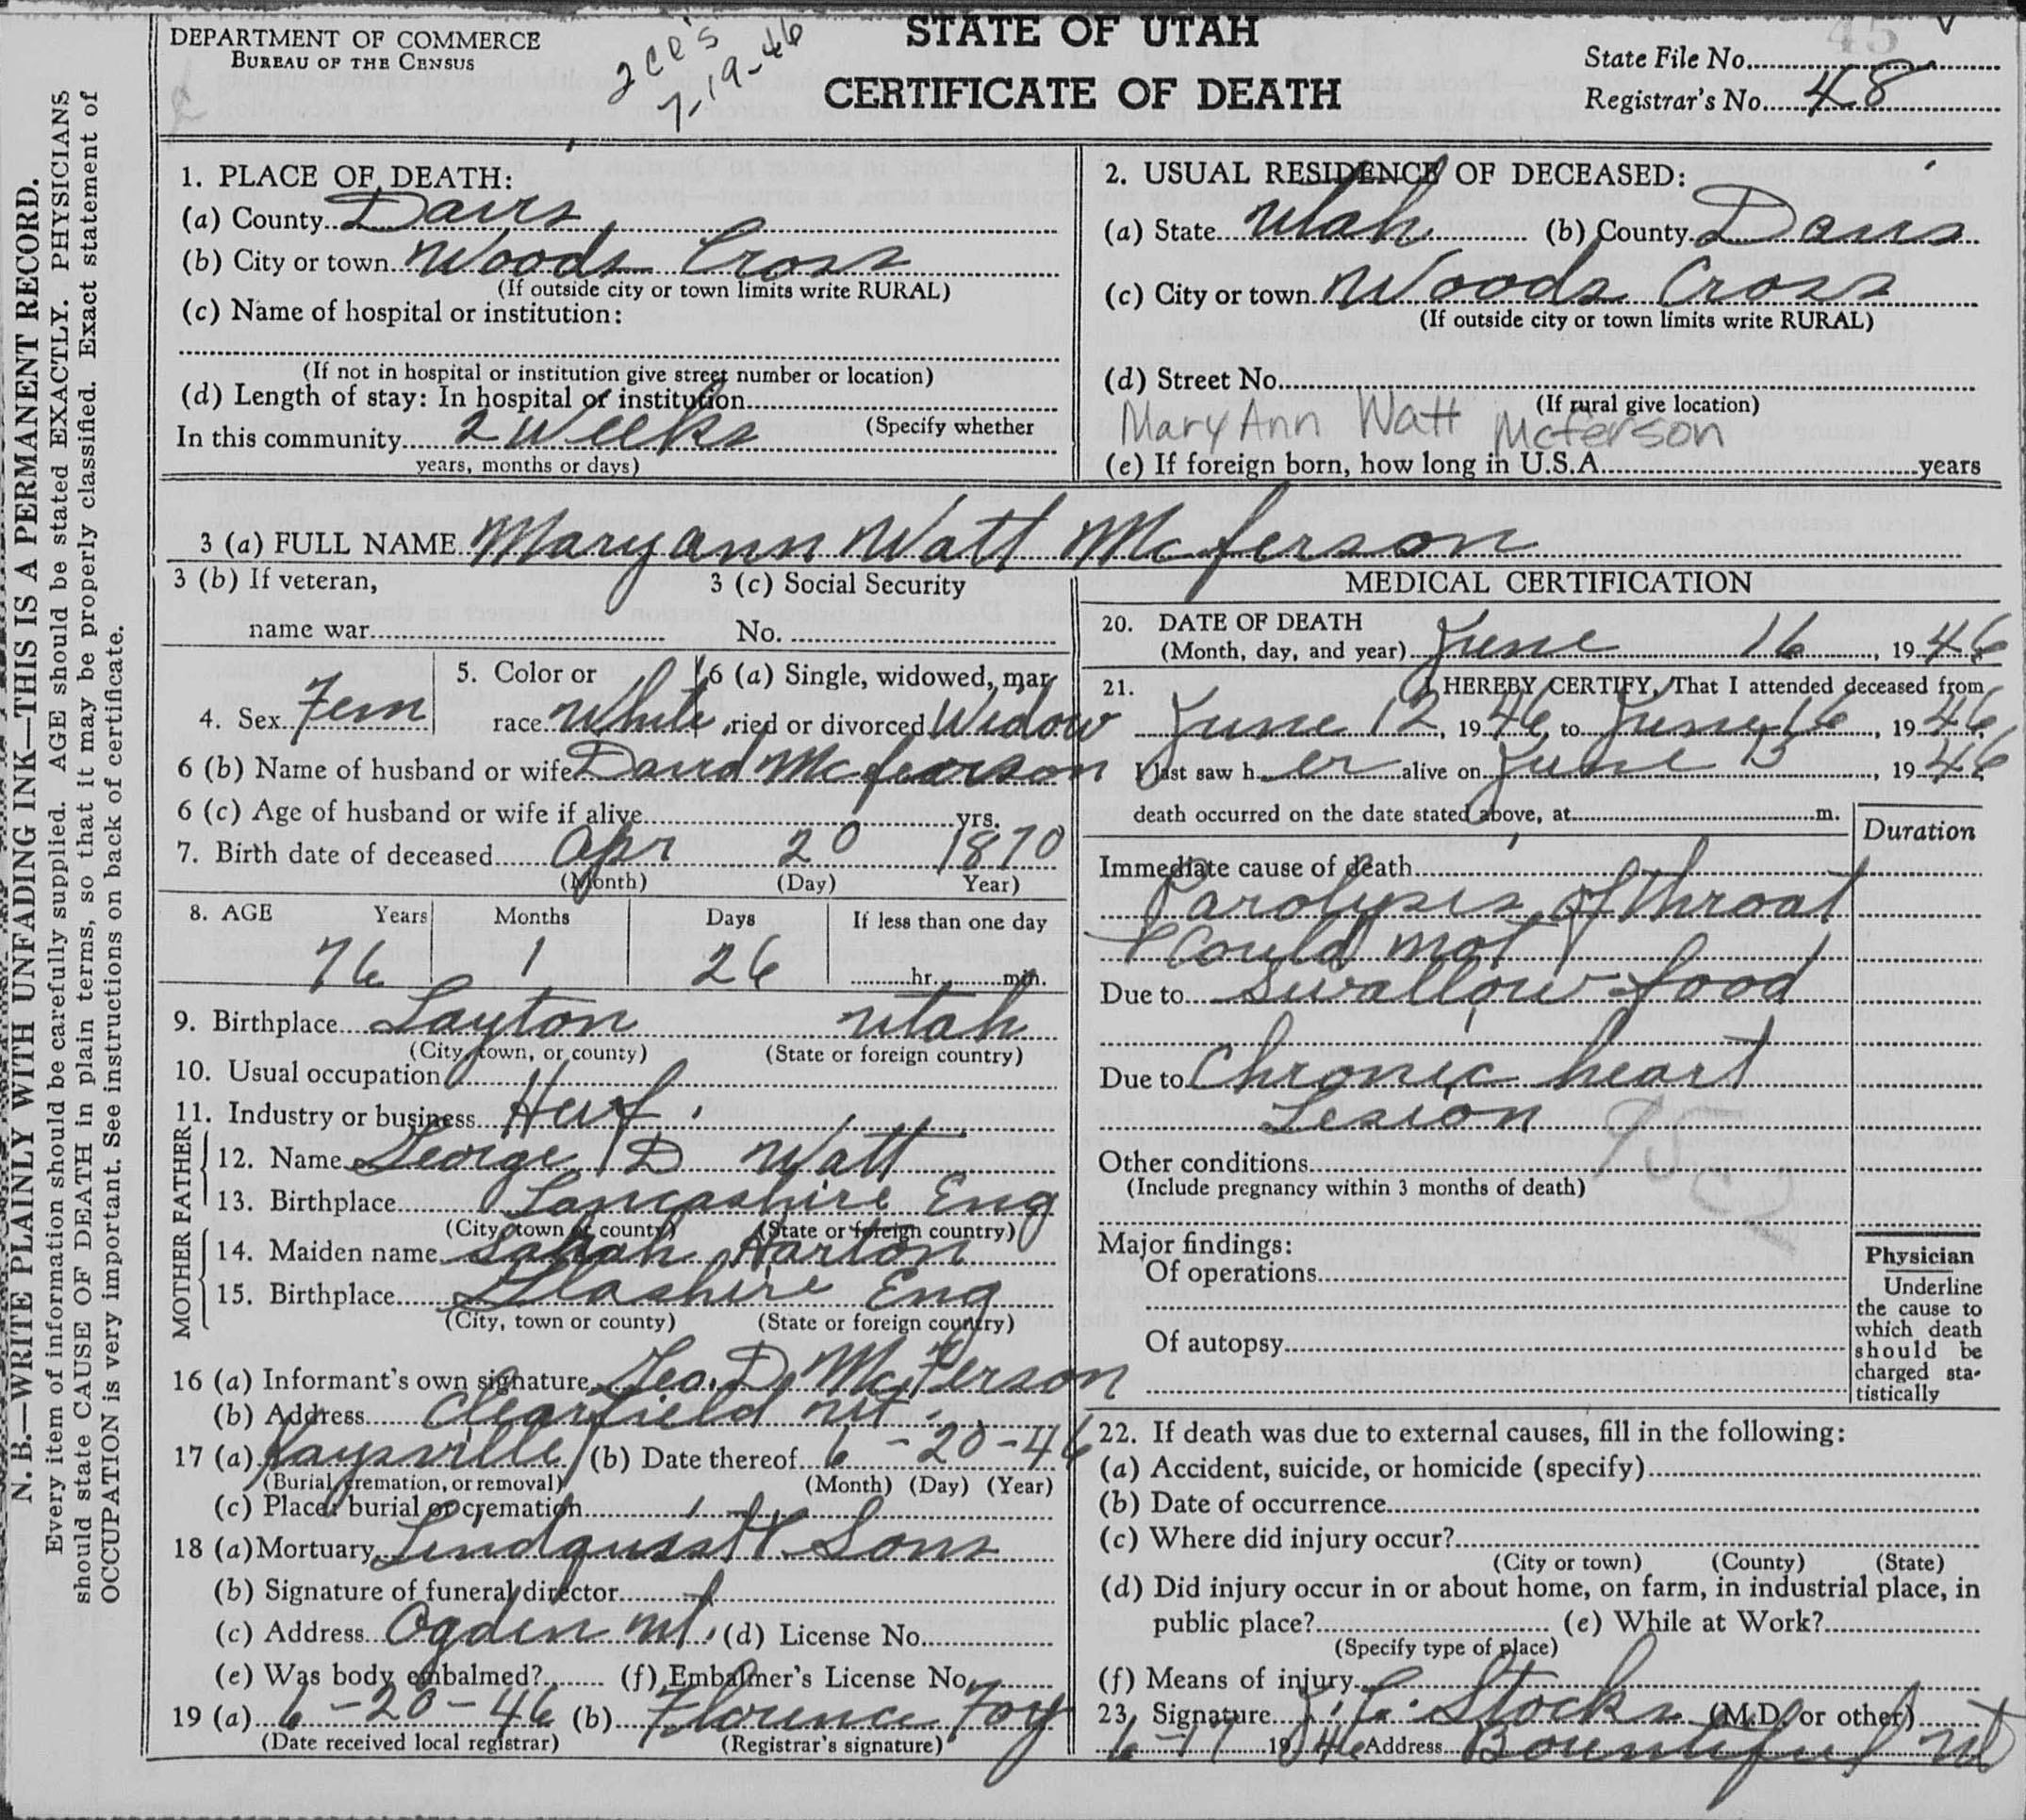 DEPARTMENT OF COMMERCE
BUREAU OF THE CENSUS
2 cc's
7-19-46
STATE OF UTAH
CERTIFICATE OF DEATH
45
State File No.
Registrar's No. 48
N. B.—WRITE PLAINLY WITH UNFADING INK—THIS IS A PERMANENT RECORD.
Every item of information should be carefully supplied. AGE should be stated EXACTLY. PHYSICIANS
should state CAUSE OF DEATH in plain terms, so that it may be properly classified. Exact statement of
OCCUPATION is very important. See instructions on back of certificate.
1. PLACE OF DEATH:
(a) County Davis
(b) City or town Woods Cross
(If outside city or town limits write RURAL)
(c) Name of hospital or institution:
(If not in hospital or institution give street number or location)
(d) Length of stay: In hospital or institution
(Specify whether
In this community 2 Weeks
years, months or days)
2. USUAL RESIDENCE OF DECEASED:
(a) State Utah (b) County Davis
(c) City or town Woods Cross
(If outside city or town limits write RURAL)
(d) Street No.
(If rural give location)
Mary Ann Watt McFerson
(e) If foreign born, how long in U.S.A. years
3 (a) FULL NAME Mary ann Watt Mc ferson
3 (b) If veteran,
name war
3 (c) Social Security
No.
4. Sex Fem
5. Color or
race White
6 (a) Single, widowed, mar-
ried or divorced Widow
6 (b) Name of husband or wife David Mc fearson
6 (c) Age of husband or wife if alive yrs.
7. Birth date of deceased Apr 20 1870
(Month) (Day) Year)
8. AGE Years Months Days If less than one day
76 1 26 hr. min.
9. Birthplace Layton Utah
(City, town, or county) (State or foreign country)
10. Usual occupation
11. Industry or business Hwf.
FATHER
12. Name George D Watt
13. Birthplace Lancashire Eng
(City, town or county) (State or foreign country)
MOTHER
14. Maiden name Sarah Harton
15. Birthplace Eng
(City, town or county) (State or foreign country)
16 (a) Informant's own signature Geo. D McFerson
(b) Address Clearfield Ut.
17 (a) Kaysville (b) Date thereof 6-20-46
(Burial, cremation, or removal) (Month) (Day) (Year)
(c) Place: burial or cremation
18 (a) Mortuary Lindquist & Sons
(b) Signature of funeral director
(c) Address Ogden Ut. (d) License No.
(e) Was body embalmed? (f) Embalmer's License No.
19 (a) 6-20-46 (b) Florence Foy
(Date received local registrar) (Registrar's signature)
MEDICAL CERTIFICATION
20. DATE OF DEATH
(Month, day, and year) June 16, 1946
21. I HEREBY CERTIFY, That I attended deceased from
June 12, 1946, to June 16, 1946,
I last saw her alive on June 15, 1946
death occurred on the date stated above, at m.
Duration
Immediate cause of death
Parolysis of throat
& Could not
Due to Swallow food
Due to Chronic heart
Lesion
Other conditions
(Include pregnancy within 3 months of death)
Major findings:
Of operations
Of autopsy
Physician
Underline
the cause to
which death
should be
charged sta-
tistically
22. If death was due to external causes, fill in the following:
(a) Accident, suicide, or homicide (specify)
(b) Date of occurrence
(c) Where did injury occur?
(City or town) (County) (State)
(d) Did injury occur in or about home, on farm, in industrial place, in
public place? (e) While at Work?
(Specify type of place)
(f) Means of injury
23. Signature Stocks (M.D. or other)
6-17 1946 Address Bountiful Ut